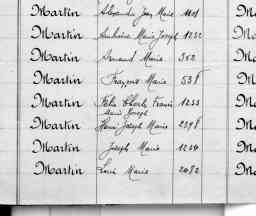 Martin Alexandre Jean Marie 1101 Mar
Martin Ambroise Marie Joseph 1232 Mar
Martin Armand Marie 352 Mar
Martin François Marie 538 Mar
Martin Félix Charles Francis 1233 Mar
Marie Joseph
Martin Henri Joseph Marie 2398 Mar
Martin Joseph Marie 1234 Mar
Martin Louis Marie 2082 Mar